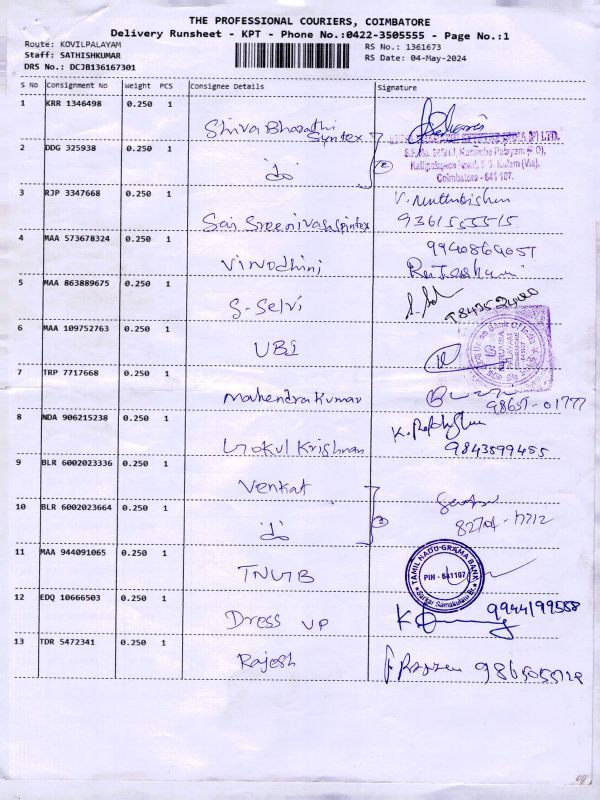 THE PROFESSIONAL COURIERS, COIMBATORE
Delivery Runsheet - KPT - Phone No.:0422-3505555 - Page No.:1
Route: KOVILPALAYAM
RS No.: 1361673
Staff: SATHISHKUMAR
RS Date: 04-May-2024
DRS No.: DCJB136167301
S No Consignment No Weight PCS Consignee Details Signature
1 KRR 1346498 0.250 1 Shiva Bharathi Syntex
2 DDG 325938 0.250 1 do
(P) LTD.
Coimbatore - 641 107.
3 RJP 3347668 0.250 1 Sai Sreenivasa Spintex
9361555515
4 MAA 573678324 0.250 1 Vinodhini
5 MAA 863889675 0.250 1 S-Selvi
6 MAA 109752763 0.250 1 UBI
7 TRP 7717668 0.250 1 Mahendra Kumar
98651-01777
8 NDA 906215238 0.250 1 Gokul Krishnan
9843599455
9 BLR 6002023336 0.250 1 Venkat
10 BLR 6002023664 0.250 1 do
11 MAA 944091065 0.250 1 TNGB
TAMIL NADU GRAMA BANK
PIN - 641107
Sarkar Samakulam Br.
12 EDQ 10666503 0.250 1 Dress up
9944199568
13 TDR 5472341 0.250 1 Rajesh